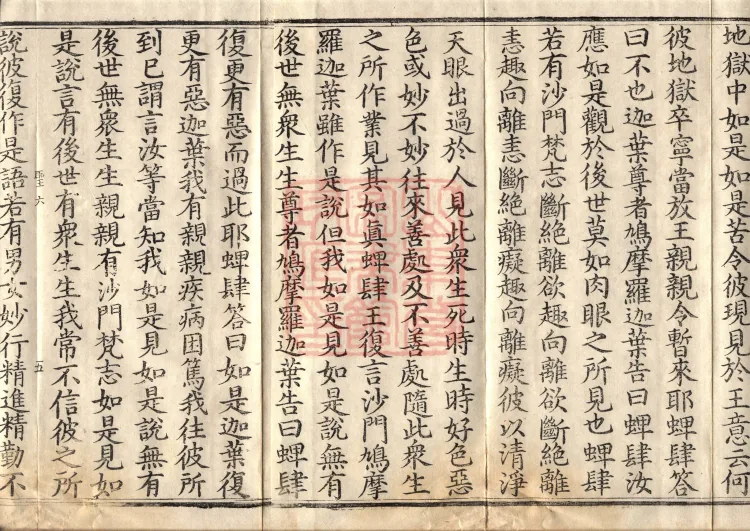 地獄中如是如是苦令彼現見於王意云何
彼地獄卒寧當放王親親令暫來耶蜱肆答
曰不也迦葉尊者鳩摩羅迦葉告曰蜱肆汝
應如是觀於後世莫如肉眼之所見也蜱肆
若有沙門梵志斷絶離欲趣向離欲斷絶離
恚趣向離恚斷絶離癡趣向離癡彼以清淨
天眼出過於人見此衆生死時生時好色惡
色或妙不妙往來善處及不善處隨此衆生
之所作業見其如眞蜱肆王復言沙門鳩摩
羅迦葉雖作是說但我如是見如是說無有
後世無衆生生尊者鳩摩羅迦葉告曰蜱肆
復更有惡而過此耶蜱肆答曰如是迦葉復
更有惡迦葉我有親親疾病困篤我往彼所
到已謂言汝等當知我如是見如是說無有
後世無衆生生親親有沙門梵志如是見如
是說言有後世有衆生生我常不信彼之所
六
五
說彼復作是語若有男女妙行精進精勤不